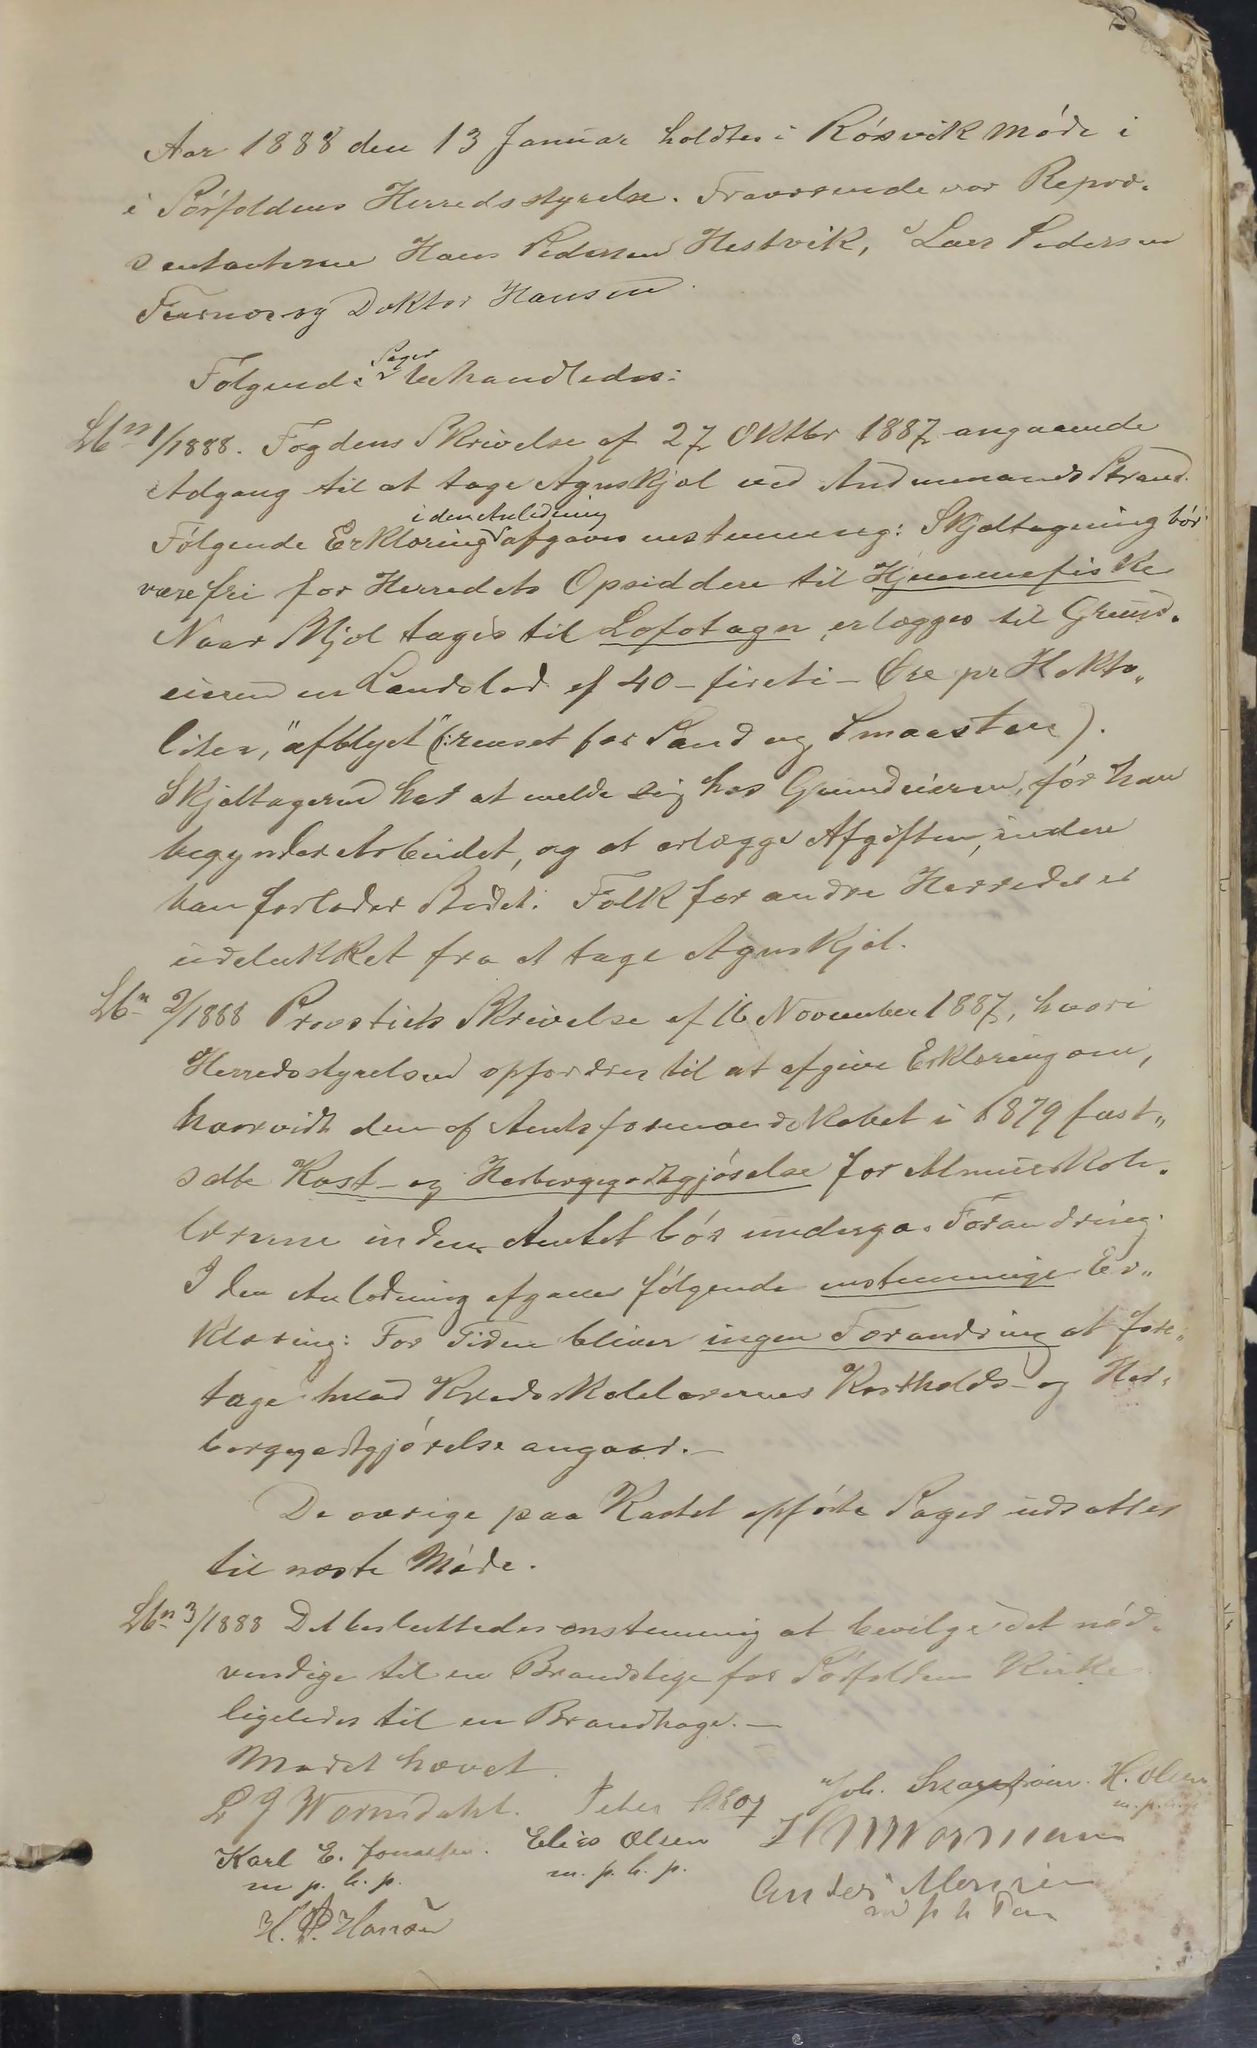 Aar 1888 den 13 Januar holdtes i Rósvik Móde i
i Sórfoldens Herredsstyrelse. Fraværende var Repræ-
sentanterne Hans Pedersen Hestvik, Lars Pedersen
og Doktor Hansen.
Fólgende Sager behandledes:
Lbn 1/1888. Fogdens Skrivelse af 27 Oktbr 1887 angaaende
Adgang til at tage Agnskjæl ved Andenmands Strand.
Fólgende Erklæring i den Anledning afgaves enstemmig: Skjæltagning bór
være fri for Herredets Opsiddere til Hjemmefiske
Naar Skjæl tages til Lofotagn, erlægges til Grund-
eieren en Landslod af 40 - fireti - Øre pr Hekto-
liter, "afblyet" (: renset for Sand og Smaasten).
Skjæltageren har at melde sig hos Grundeieren, fór han
begynder Arbeidet, og at erlægge Afgiften, inden
han forlader Stedet. Folk for andre Herreder er
udelukket fra at tage Agnskjæl.
Lbn 2/1888 Provstiets Skrivelse af 16 November 1887, hvori
Herredsstyrelsen opfordres til at afgive Erklæring om,
hvorvidt den af Amtsformandskabet i 1879 fast-
satte Kost- og Herbergegodtgjórelse for Almueskole-
lærerne inden Amtet bór undergaa Forandring.
I den Anledning afgaves fólgende enstemmige Er-
klæring: For Tiden bliver ingen Forandring at fore-
tage hvad Kredsskolelærernes Kostholds- og Her-
bergegodtgjórelse angaar.-
De óvrige paa Kartet opfórte Sager udsattes
til næste Móde.
Lbn 3/1888 Det besluttedes enstemmig at bevilge det nód-
vendige til en Brandstige for Sórfolden Kirke
ligeledes til en Brandhage.-
Mødet hævet.
L J Worumdahl. Peter Skog Joh. H. Olsen
m.p.h.p.
Karl E. Jonassen. Elias Olsen
m p. h. p. m. p. h. p.
Anders
m p h Pen
H. P. Hansen